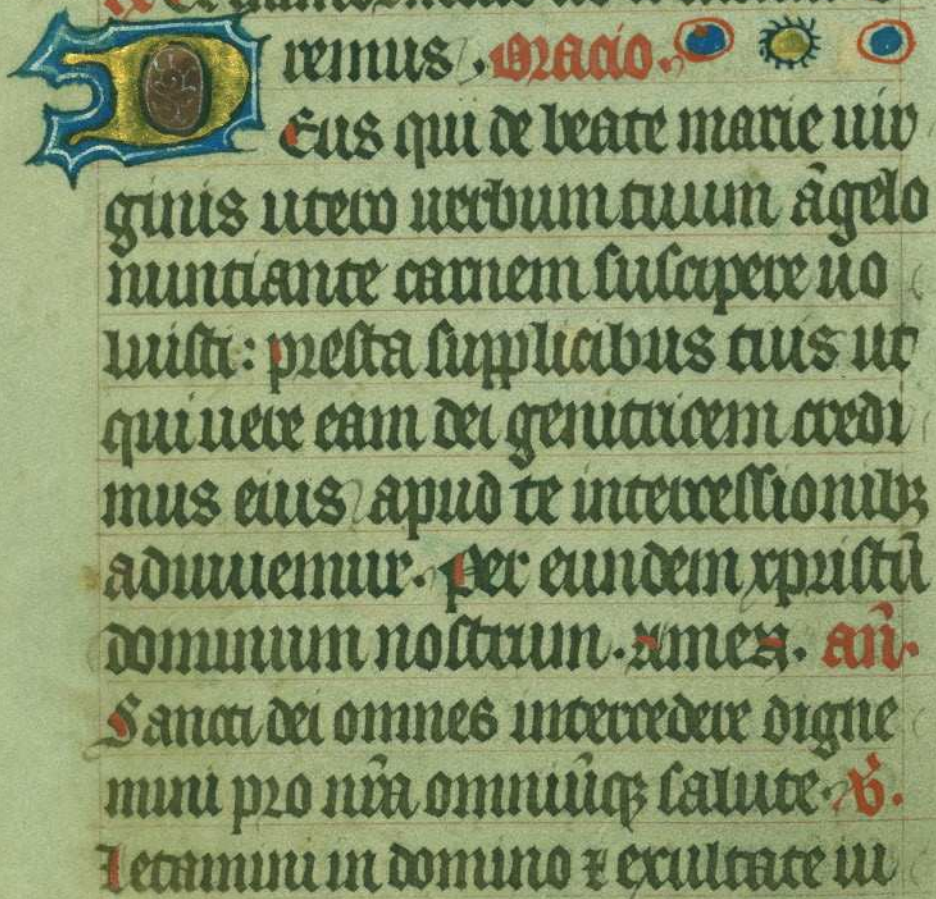 remus. Oracio.
D Eus qui de beate marie uir
ginis utero uerbum tuum āgelo
nuntiante carnem suscipere uo
luisti: presta supplicibus tuis ut
qui uere eam dei genitricem credi
mus eius apud te intercessionibꝫ
adiuuemur. Per eundem xpristū
dominum nostrum. Amen. añ.
Sancti dei omnes intercedere digne
mini pro nr̄a omniūqꝫ salute. ℣.
Letamini in domino ⁊ exultate iu